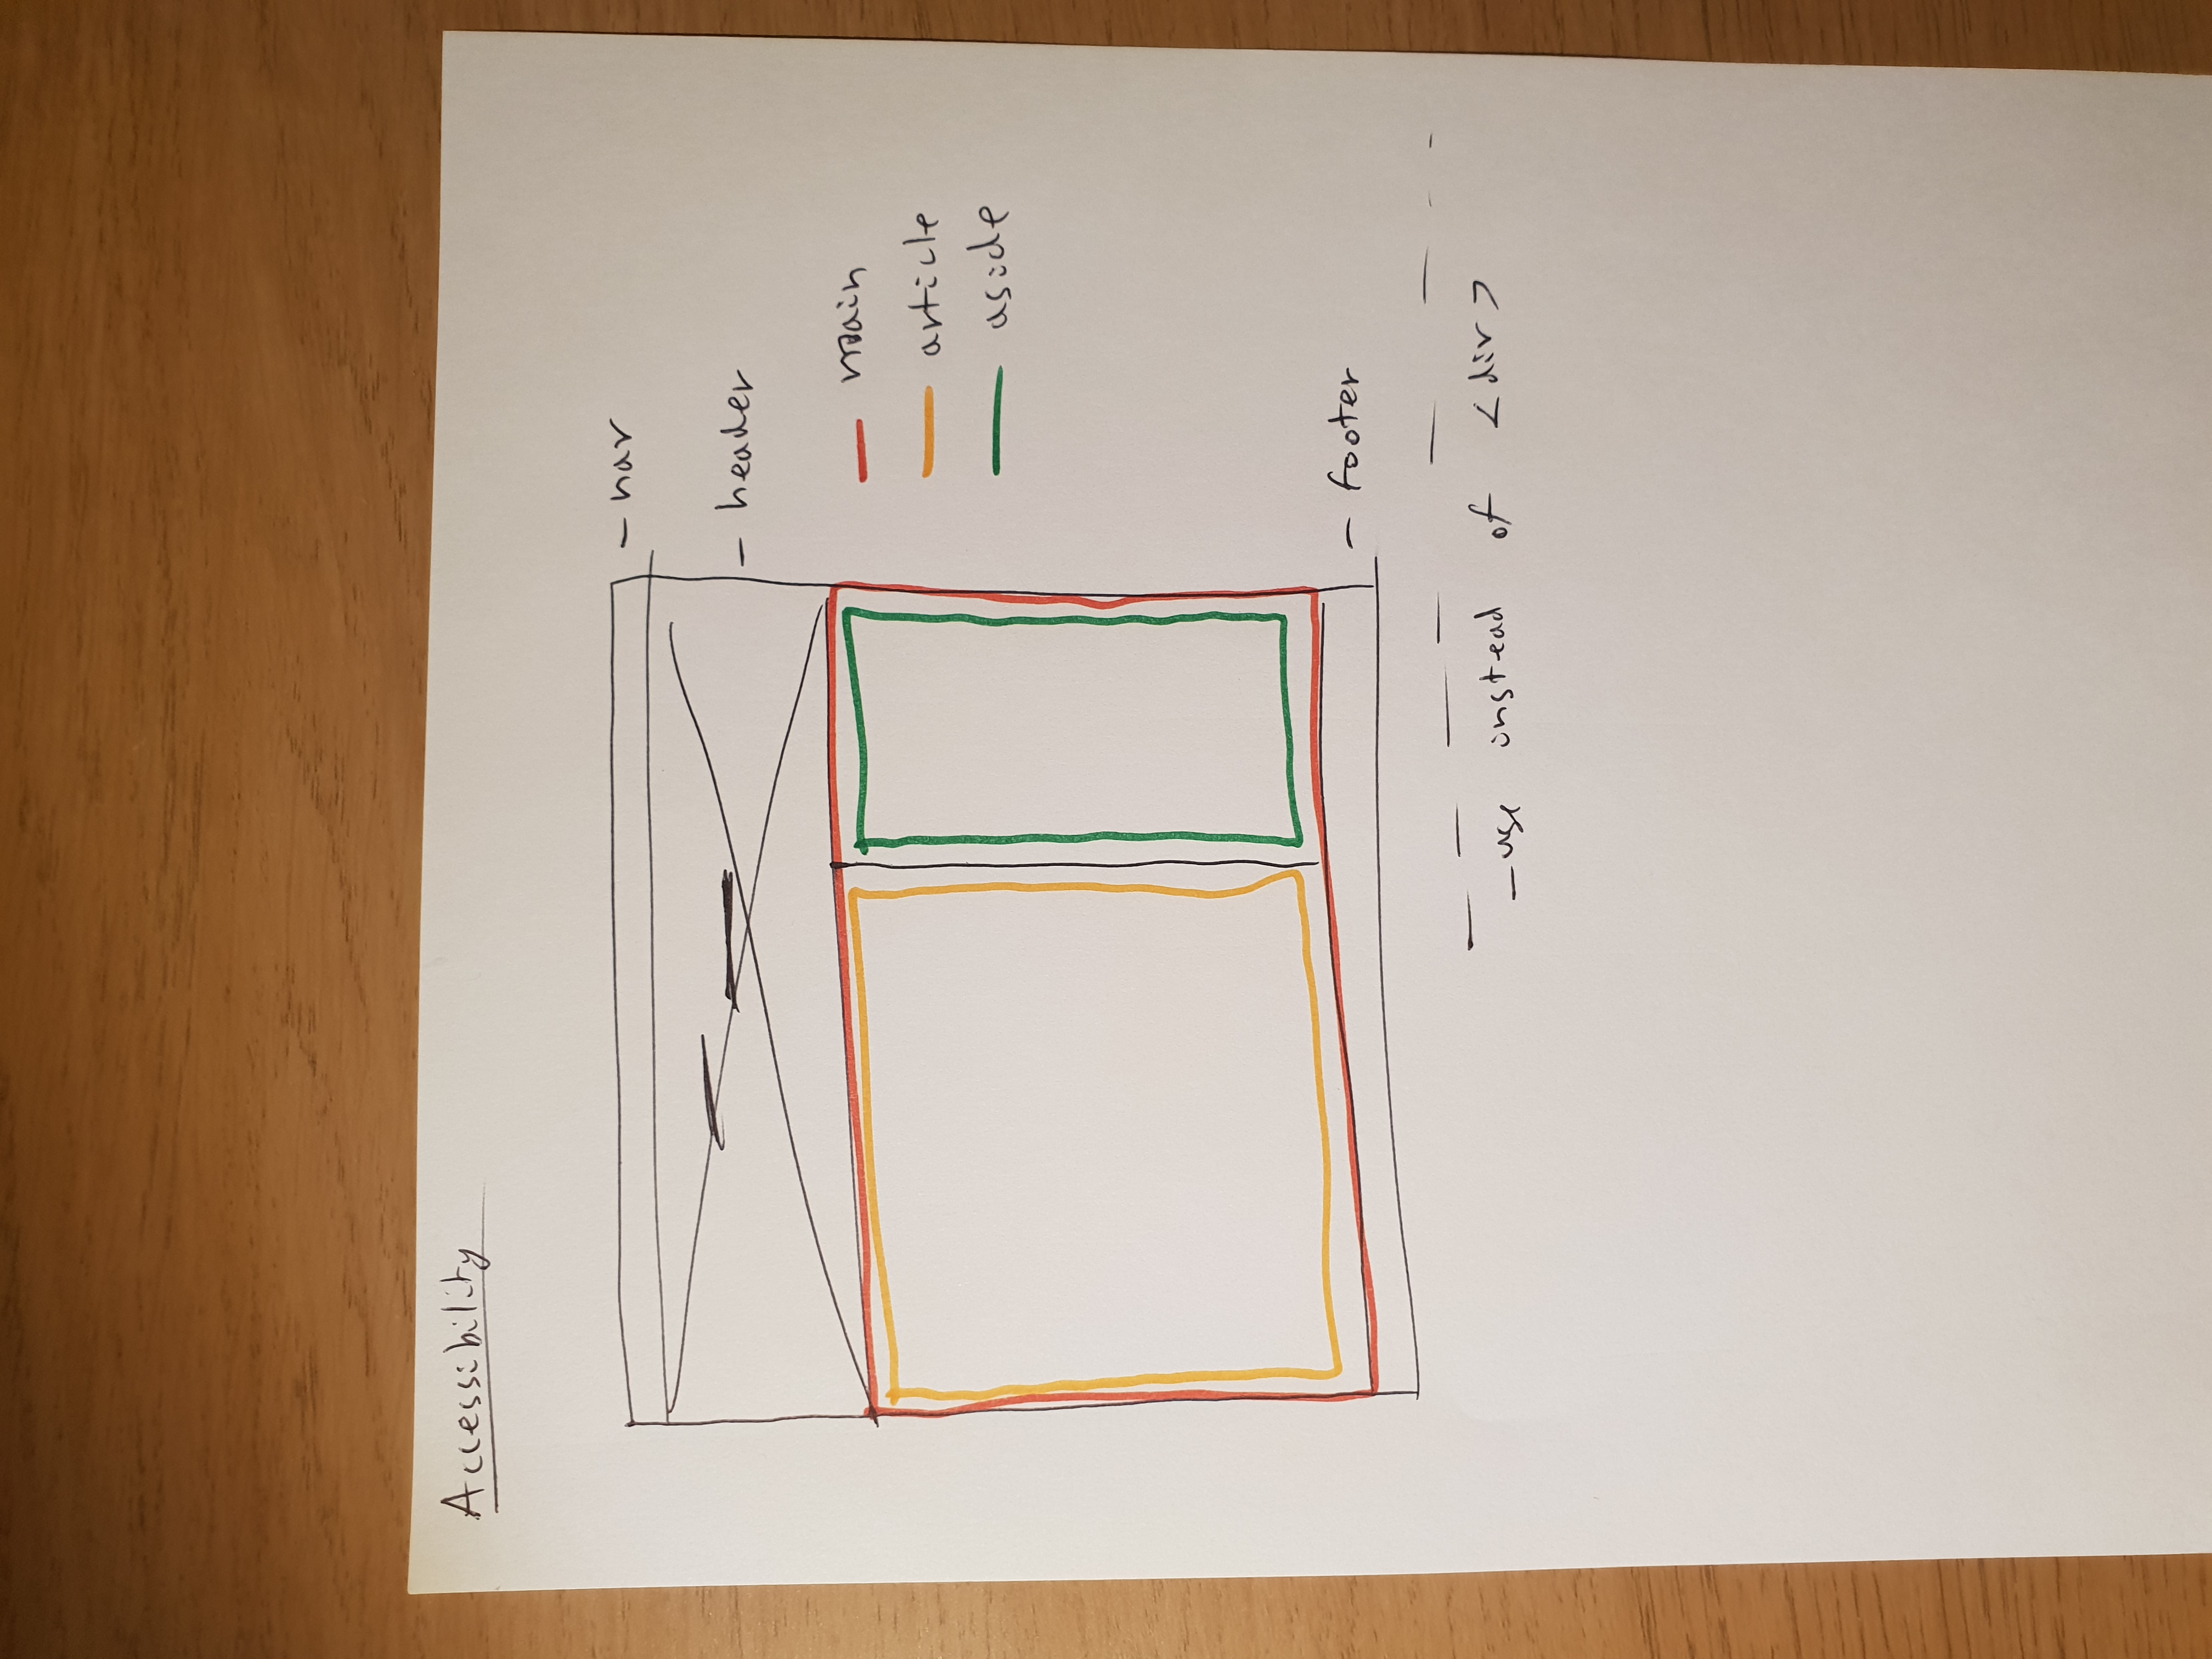 Accessibility
- nav
- header
main
article
aside
- footer
- use instead of <div>